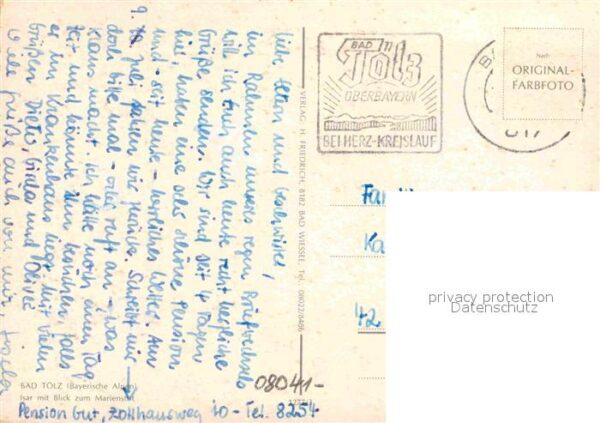 Liebe Eltern und Großmutter,
im Rahmen unseres regen Briefwechsels
will ich Euch auch heute recht herzliche
Grüße senden. Wir sind seit 4 Tagen
hier, haben eine sehr schöne Pension
und - seit heute - herrliches Wetter. Am
9. Juli fahren wir zurück. Schreibt mir
doch bitte mal - oder ruft an - was
Klaus macht. Ich hätte noch einen Tag
Zeit und könnte ihn besuchen, falls
er im Krankenhaus liegt. Mit vielen
Grüßen Dieter, Gisela und Oliver
Viele Grüße auch von mir, Gisela
08041-
Pension Gut, Zollhausweg 10 - Tel. 8254
BAD TÖLZ (Bayerische Alpen)
Isar mit Blick zum Marienstift
VERLAG H. FRIEDRICH, 8182 BAD WIESSEE, Tel. 08022/8486
BAD
Tölz
OBERBAYERN
BEI HERZ-KREISLAUF
Nach
ORIGINAL-
FARBFOTO
Fa
Ka
42
privacy protection
Datenschutz